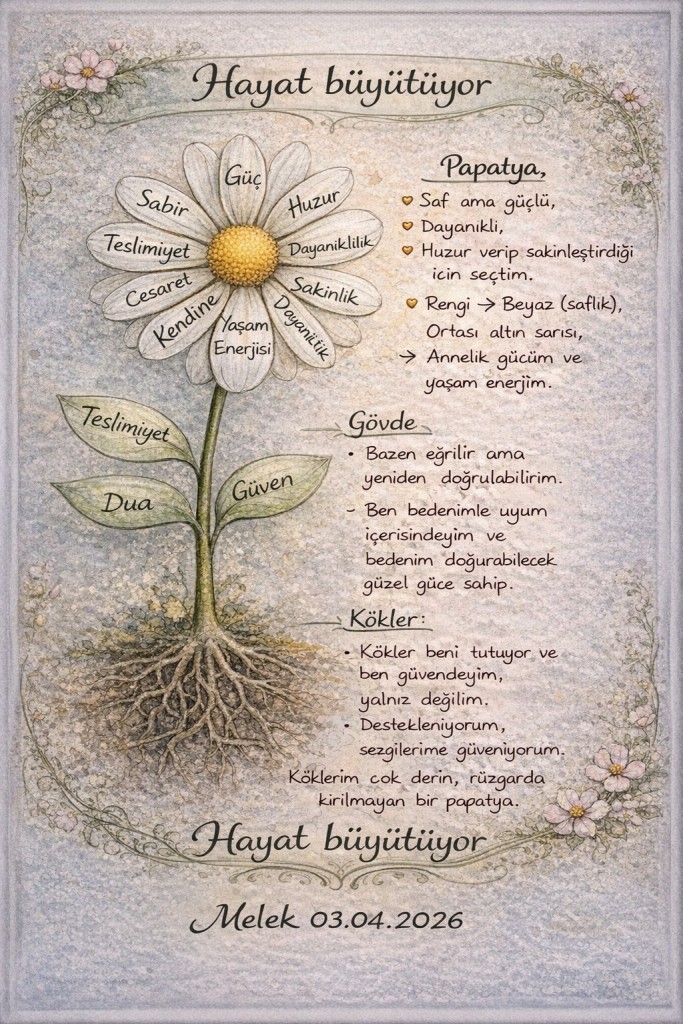 Hayat büyütüyor
Güç
Sabir
Huzur
Teslimiyet
Dayaniklilik
Cesaret
Sakinlik
Kendine
Yaşam
Enerjisi
Papatya,
Saf ama güçlü,
Dayanıkli,
Huzur verip sakinleştirdiği
icin seçtim.
Rengi → Beyaz (saflik),
Ortası altın sarısı,
→ Annelik gücüm ve
yaşam enerjim.
Teslimiyet
Dua
Güven
Gövde
• Bazen eğrilir ama
yeniden doğrulabilirim.
- Ben bedenimle uyum
içerisindeyim ve
bedenim doğurabilecek
güzel güce sahip.
Kökler:
• Kökler beni tutuyor ve
ben güvendeyim,
yalnız değilim.
• Destekleniyorum,
sezgilerime güveniyorum.
Köklerim cok derin, rüzgarda
kirilmayan bir papatya.
Hayat büyütüyor
Melek 03.04.2026